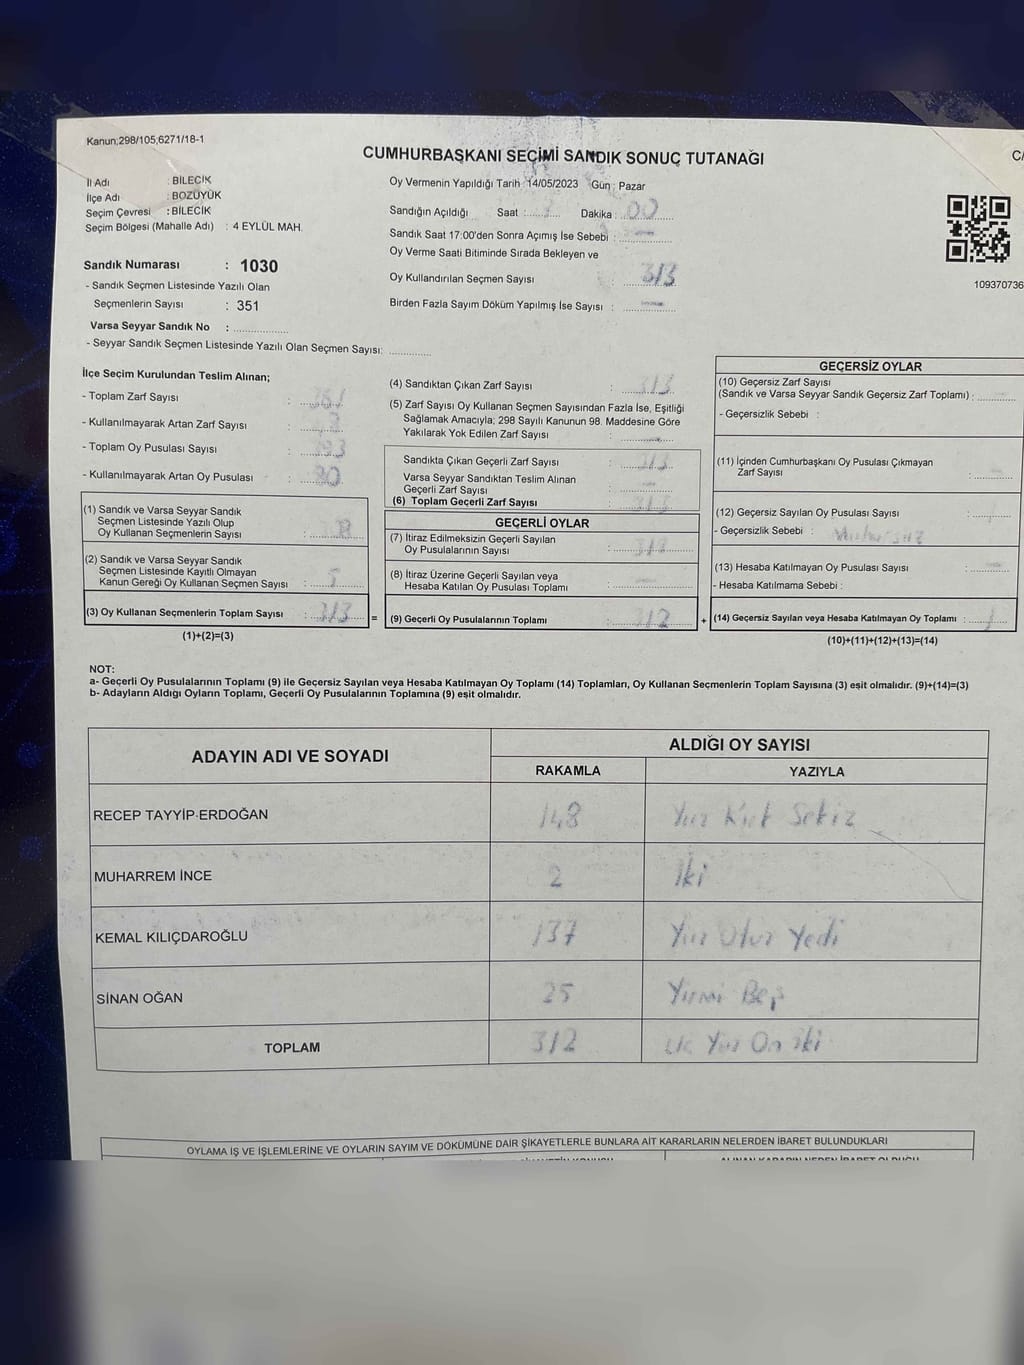 Kanun;298/105,6271/18-1
CUMHURBAŞKANI SEÇİMİ SANDIK SONUÇ TUTANAĞI
C/
İl Adı : BİLECİK
İlçe Adı : BOZÜYÜK
Seçim Çevresi : BİLECİK
Seçim Bölgesi (Mahalle Adı) : 4 EYLÜL MAH.
Sandık Numarası : 1030
- Sandık Seçmen Listesinde Yazılı Olan
Seçmenlerin Sayısı : 351
Varsa Seyyar Sandık No :
- Seyyar Sandık Seçmen Listesinde Yazılı Olan Seçmen Sayısı:
Oy Vermenin Yapıldığı Tarih 14/05/2023 Gün : Pazar
Sandığın Açıldığı Saat : Dakika : 00
Sandık Saat 17:00'den Sonra Açımış İse Sebebi : —
Oy Verme Saati Bitiminde Sırada Bekleyen ve
Oy Kullandırılan Seçmen Sayısı : 313
Birden Fazla Sayım Döküm Yapılmış İse Sayısı : —
109370736
İlçe Seçim Kurulundan Teslim Alınan;
- Toplam Zarf Sayısı :
- Kullanılmayarak Artan Zarf Sayısı :
- Toplam Oy Pusulası Sayısı :
- Kullanılmayarak Artan Oy Pusulası :
(1) Sandık ve Varsa Seyyar Sandık
Seçmen Listesinde Yazılı Olup
Oy Kullanan Seçmenlerin Sayısı :
(2) Sandık ve Varsa Seyyar Sandık
Seçmen Listesinde Kayıtlı Olmayan
Kanun Gereği Oy Kullanan Seçmen Sayısı : 5
(3) Oy Kullanan Seçmenlerin Toplam Sayısı : 313 =
(1)+(2)=(3)
(4) Sandıktan Çıkan Zarf Sayısı : 313
(5) Zarf Sayısı Oy Kullanan Seçmen Sayısından Fazla İse, Eşitliği
Sağlamak Amacıyla; 298 Sayılı Kanunun 98. Maddesine Göre
Yakılarak Yok Edilen Zarf Sayısı : —
Sandıkta Çıkan Geçerli Zarf Sayısı : 313
Varsa Seyyar Sandıktan Teslim Alınan
Geçerli Zarf Sayısı : —
(6) Toplam Geçerli Zarf Sayısı : 313
GEÇERLİ OYLAR
(7) İtiraz Edilmeksizin Geçerli Sayılan
Oy Pusulalarının Sayısı : 312
(8) İtiraz Üzerine Geçerli Sayılan veya
Hesaba Katılan Oy Pusulası Toplamı : —
(9) Geçerli Oy Pusulalarının Toplamı : 312 +
GEÇERSİZ OYLAR
(10) Geçersiz Zarf Sayısı
(Sandık ve Varsa Seyyar Sandık Geçersiz Zarf Toplamı) : —
- Geçersizlik Sebebi :
(11) İçinden Cumhurbaşkanı Oy Pusulası Çıkmayan
Zarf Sayısı : —
(12) Geçersiz Sayılan Oy Pusulası Sayısı : 1
- Geçersizlik Sebebi :
(13) Hesaba Katılmayan Oy Pusulası Sayısı : —
- Hesaba Katılmama Sebebi :
(14) Geçersiz Sayılan veya Hesaba Katılmayan Oy Toplamı : 1
(10)+(11)+(12)+(13)=(14)
NOT:
a- Geçerli Oy Pusulalarının Toplamı (9) ile Geçersiz Sayılan veya Hesaba Katılmayan Oy Toplamı (14) Toplamları, Oy Kullanan Seçmenlerin Toplam Sayısına (3) eşit olmalıdır. (9)+(14)=(3)
b- Adayların Aldığı Oyların Toplamı, Geçerli Oy Pusulalarının Toplamına (9) eşit olmalıdır.
ADAYIN ADI VE SOYADI
ALDIĞI OY SAYISI
RAKAMLA YAZIYLA
RECEP TAYYİP ERDOĞAN 148 Yüz Kırk Sekiz
MUHARREM İNCE 2 İki
KEMAL KILIÇDAROĞLU 137 Yüz Otuz Yedi
SİNAN OĞAN 25 Yirmi Beş
TOPLAM 312 Üç Yüz On İki
OYLAMA İŞ VE İŞLEMLERİNE VE OYLARIN SAYIM VE DÖKÜMÜNE DAİR ŞİKAYETLERLE BUNLARA AİT KARARLARIN NELERDEN İBARET BULUNDUKLARI